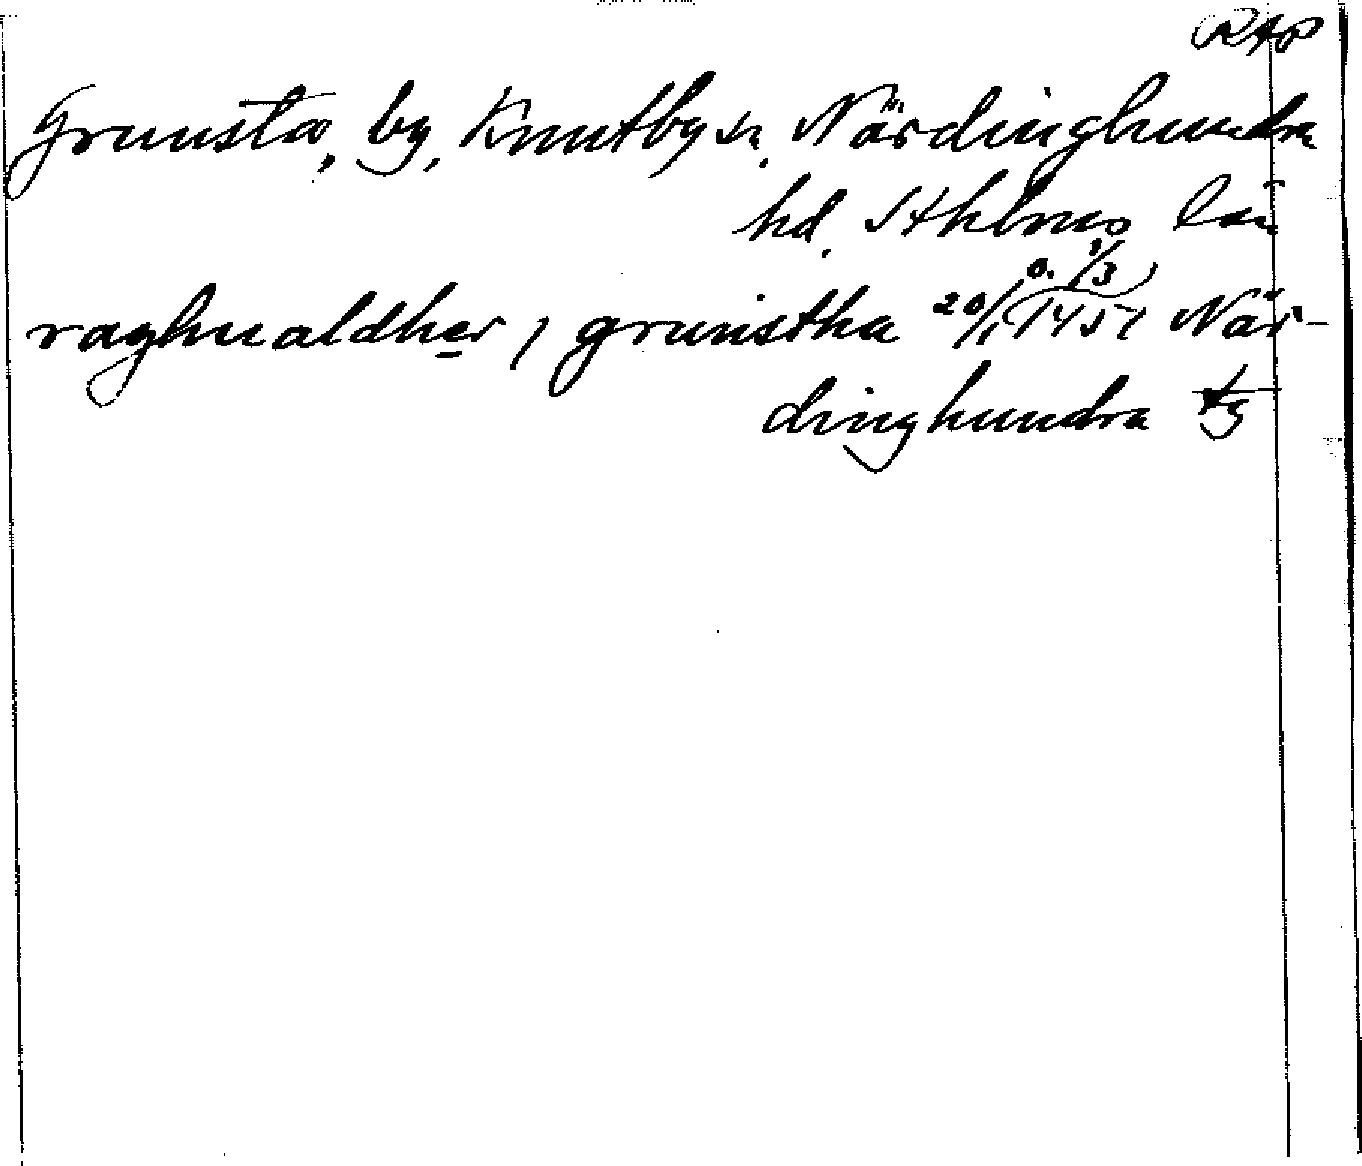 RAp
Grunsta, by, Knutby sn. Närdinghundra
hd. Sthlms län
raghualdher j grunistha 20/1 (o. 1/3) 1451 När-
dinghundra tg